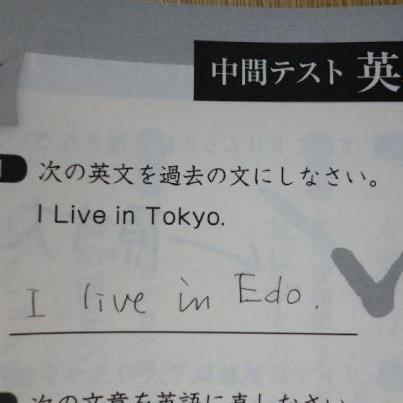 中間テスト 英
次の英文を過去の文にしなさい。
I Live in Tokyo.
I live in Edo.
次の文章を英語に直しなさい